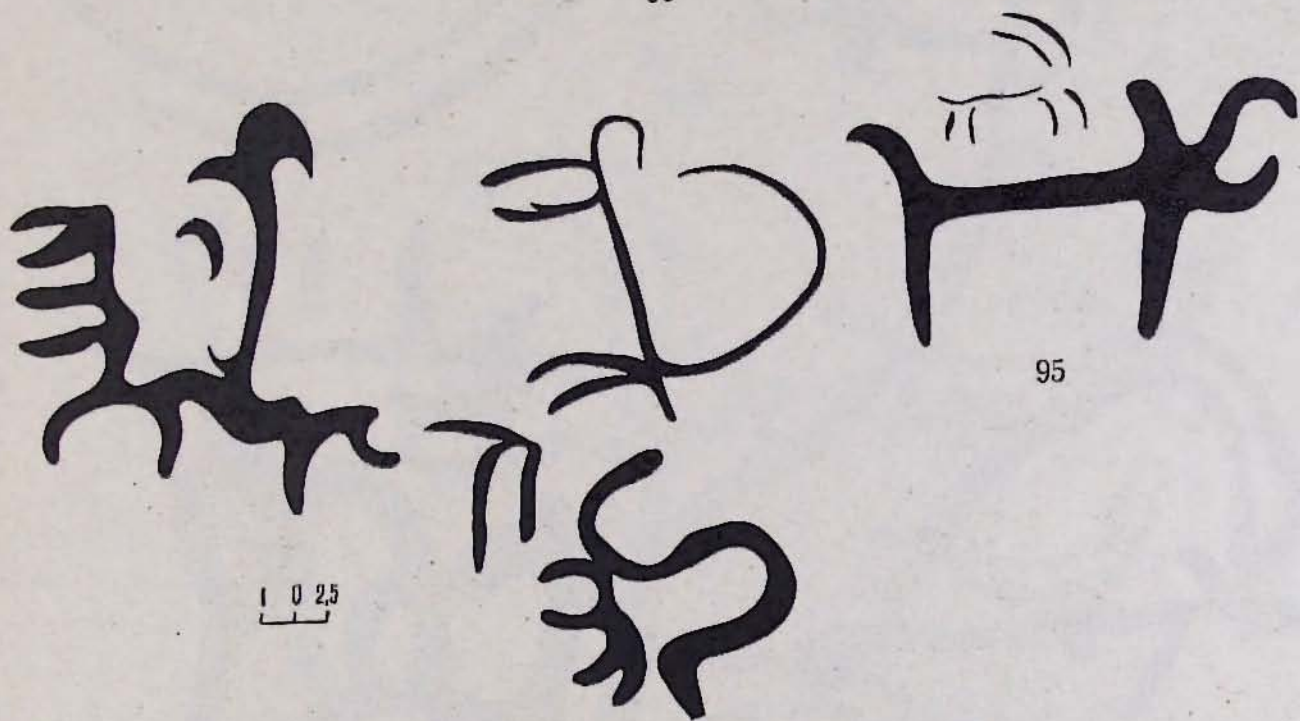 95
1 0 2,5